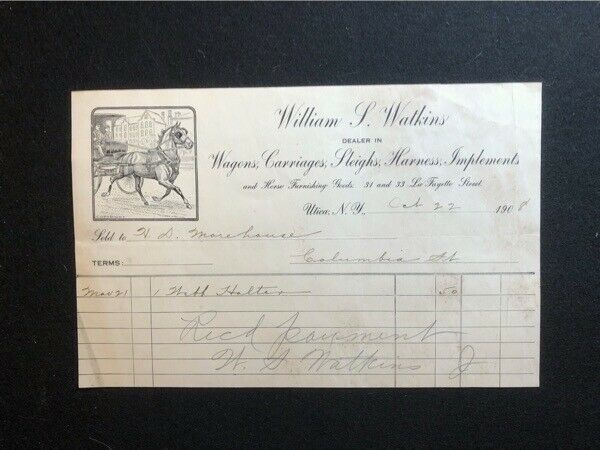 William S. Watkins
DEALER IN
Wagons, Carriages, Sleighs, Harness, Implements
and Horse Furnishing Goods. 31 and 33 La Fayette Street.
Utica, N.Y., Oct 22 1908
Sold to H. D. Morehouse
TERMS: Columbia St
Mar 21 1 Webb Halter 50
Rec'd payment
W. S. Watkins